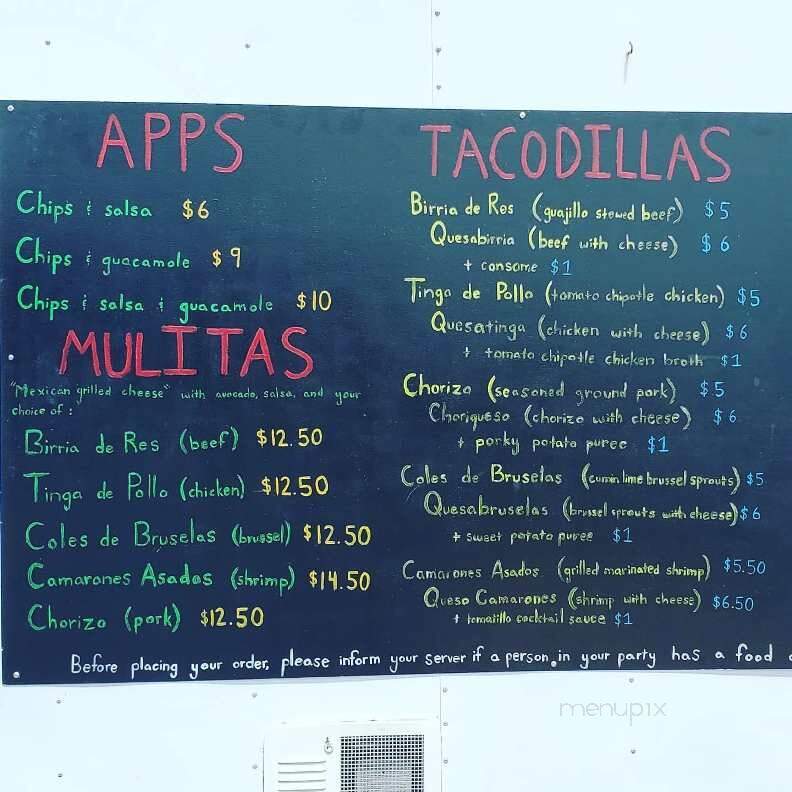 APPS
Chips & salsa $6
Chips & guacamole $9
Chips & salsa & guacamole $10
MULITAS
"Mexican grilled cheese" with avocado, salsa, and your
choice of :
Birria de Res (beef) $12.50
Tinga de Pollo (chicken) $12.50
Coles de Bruselas (brussel) $12.50
Camarones Asados (shrimp) $14.50
Chorizo (pork) $12.50
TACODILLAS
Birria de Res (guajillo stewed beef) $5
Quesabirria (beef with cheese) $6
+ consome $1
Tinga de Pollo (tomato chipotle chicken) $5
Quesatinga (chicken with cheese) $6
+ tomato chipotle chicken broth $1
Chorizo (seasoned ground pork) $5
Choriqueso (chorizo with cheese) $6
+ porky potato puree $1
Coles de Bruselas (cumin lime brussel sprouts) $5
Quesabruselas (brussel sprouts with cheese) $6
+ sweet potato puree $1
Camarones Asados (grilled marinated shrimp) $5.50
Queso Camarones (shrimp with cheese) $6.50
+ tomatillo cocktail sauce $1
Before placing your order, please inform your server if a person in your party has a food
menupix